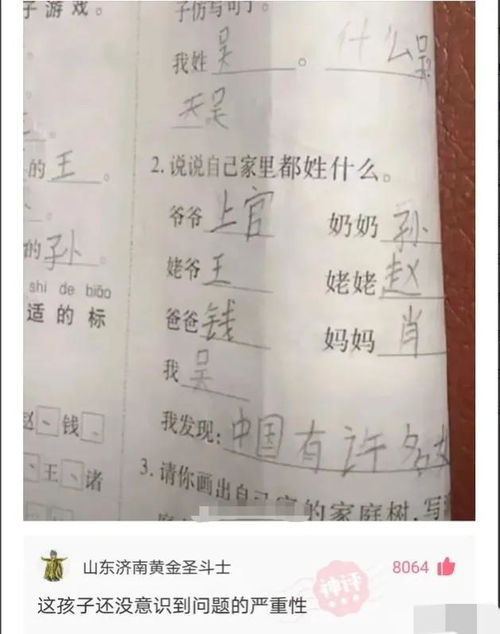 子游戏。
子仿写句子。
我姓吴。什么吴
天吴
的王。
2. 说说自己家里都姓什么。
爷爷上官 奶奶孙
的孙。
姥爷王 姥姥赵
shi de biāo
适的标
爸爸钱 妈妈肖
我吴
赵 、钱
我发现：中国有许多
、王、诸
3. 请你画出自己家的家庭树，写
山东济南黄金圣斗士 8064
神评
这孩子还没意识到问题的严重性